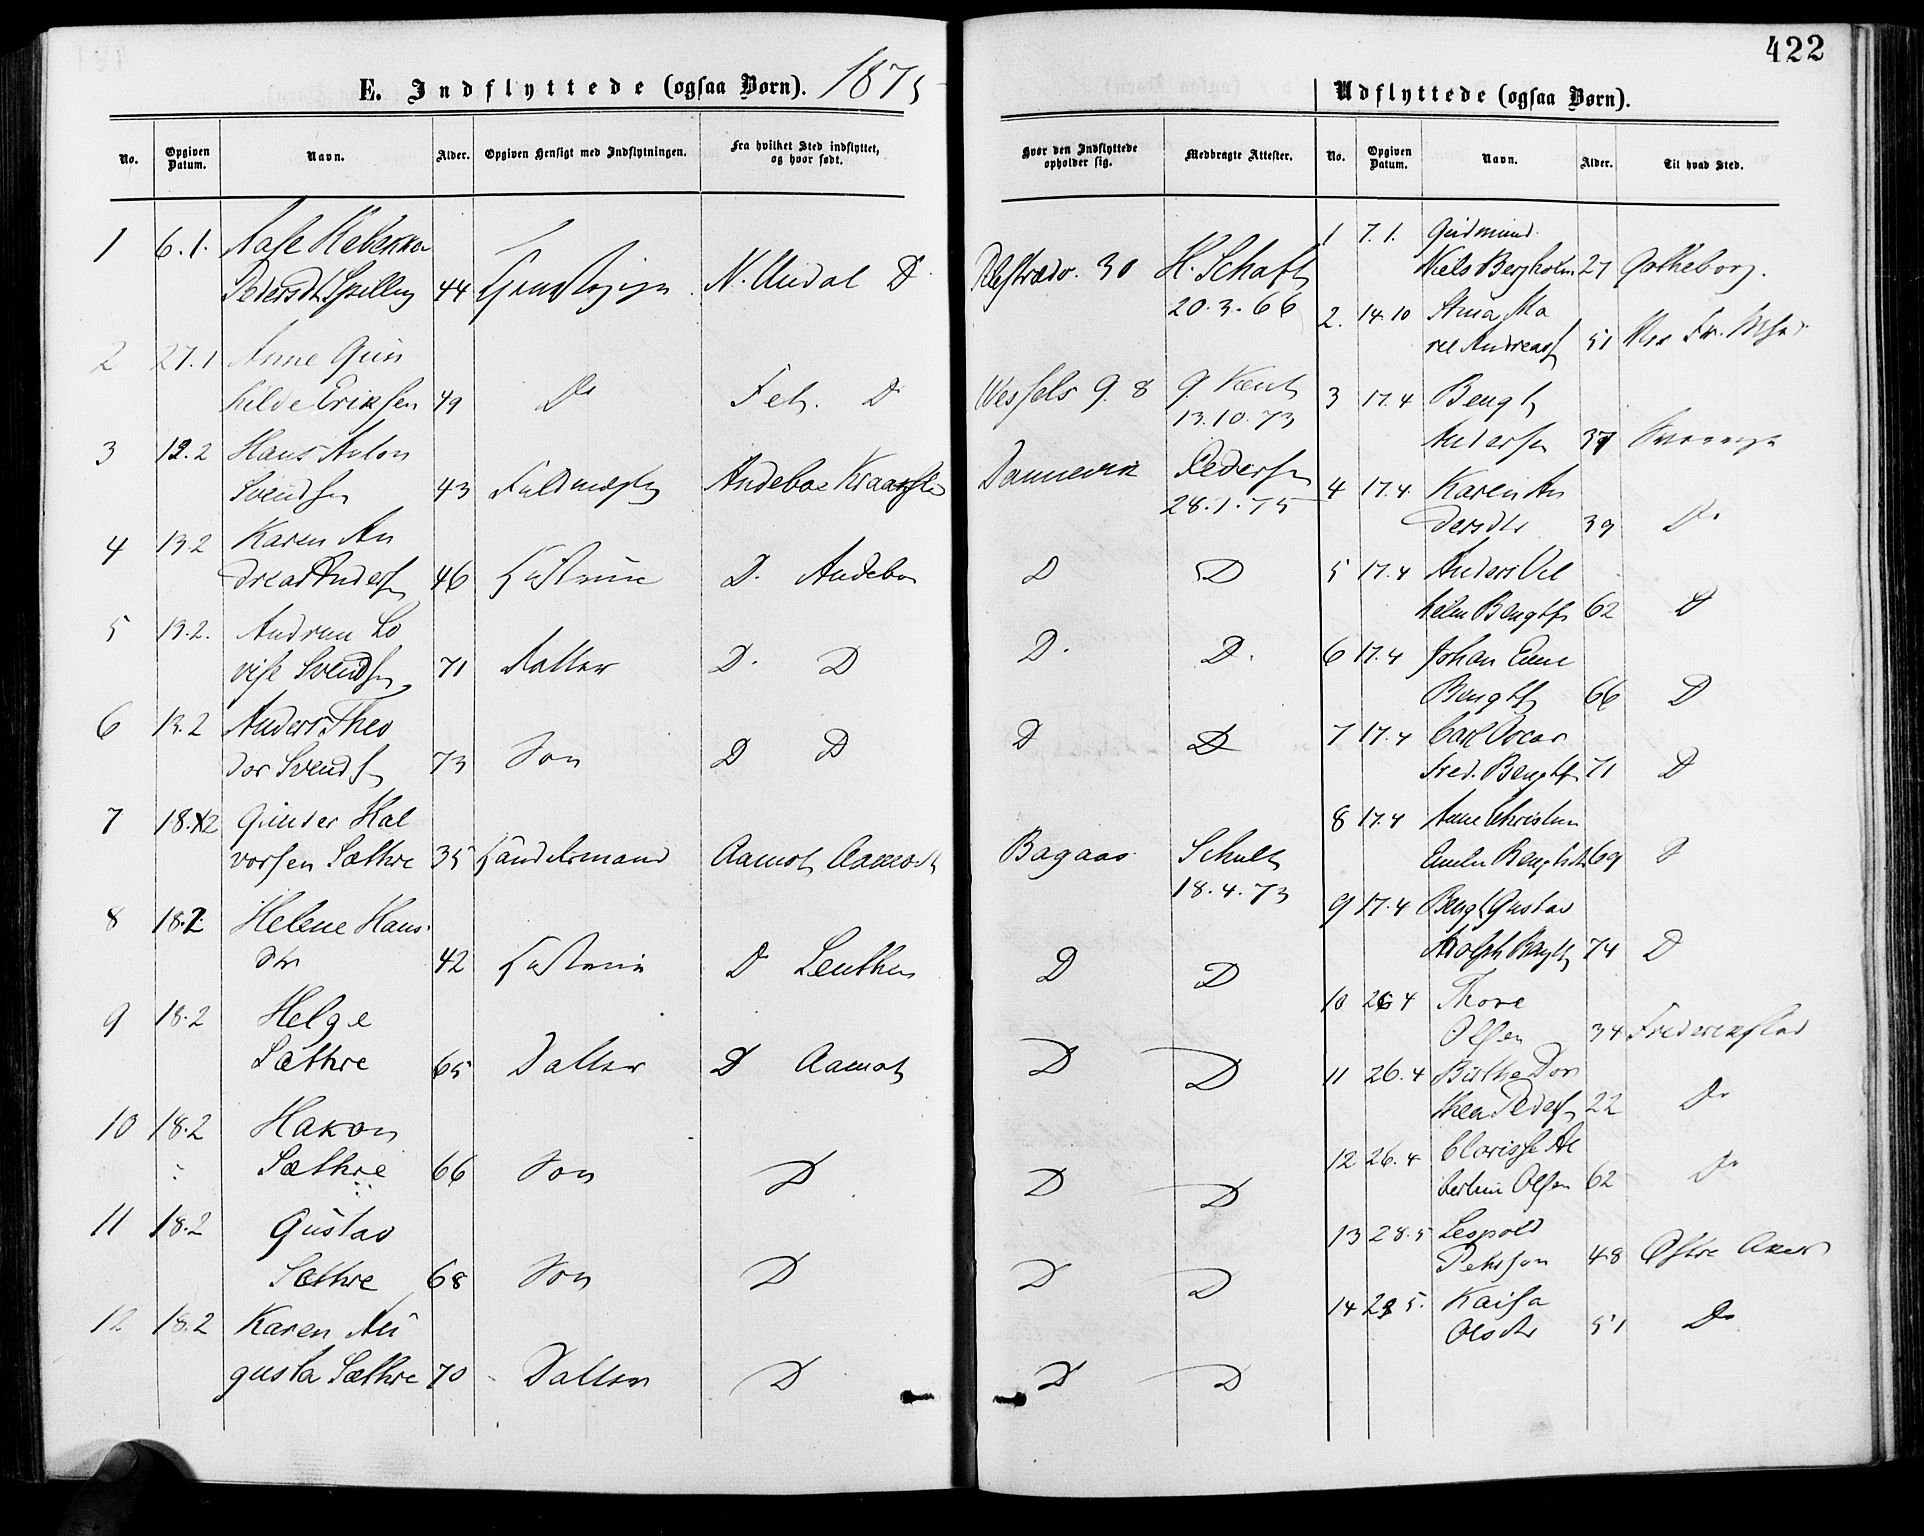 422
E. Indflyttede (ogsaa Børn). 1875
No. Opgiven Datum. Navn. Alder. Opgiven Hensigt med Indflytningen. Fra hvilket Sted indflyttet, og hvor født. Hvor den Indflyttede opholder sig. Medbragte Attester.
1 6.1. Aase Rebekka
Pedersdt 44 N. Undal D 30 H. Schaft
20.3.66
2 27.1 Anne Gun
hilde Eriksen 49 Do Fet. D Wessels g. 8
13.10.73
3 12.2 Hans Anton
Svendsen 43 Andebo Dannevik Pedersen
28.1.75
4 13.2 Karen An
drea Anders 46 Hustrue D. Andebo D D
5 13.2. Andrea Lo
vise Svends 71 Datter D. D D. D.
6 13.2 Anders Theo
dor Svends 73 Søn D D D D
7 18.2 Gunder Hal
vorsen Sæthre 35 Haandværksmand Aamot Aamodt Bagaas Schult
18.4.73
8 18.2 Helene Hans
dtr 42 Hustrue D Leuthen D D
9 18.2 Helge
Sæthre 65 Datter D Aamot D D
10 18.2 Hakon
Sæthre 66 Søn D D D
11 18.2 Gustav
Sæthre 68 Søn D D D
12 18.2 Karen Au
gusta Sæthre 70 Datter D D D
Udflyttede (ogsaa Børn).
No. Opgiven Datum. Navn. Alder. Til hvad Sted.
1 7.1. Gudmund
Niels Bergholm 27 Gøtheborg.
2. 14.10 Stina Ma
rel Andreas 51
3 17.4 Bengt
Andersen 37 Sverrige
4 17.4. Karen An
dersdtr 39 Do
5 17.4 Anders Vil
helm Bengts 62 D
6 17.4 Johan Emil
Bengts 66 D
7 17.4 Carl Oscar
Fred. Bengts 71 D
8 17.4 Anne Christine
Emilie Bengtsdtr 69 D
9 17.4 Bengt Gustav
Adolph Bengts 74 D
10 26.4 Thore
Olsen 34 Frederikstad
11 26.4 Birthe Dor
thea Peders 22 Do
12 26.4 Clarisse Al
bertine Olsen 62 Do
13 28.5 Leopold
Pehrson 48 Østre Aker
14 28.5. Kaisa
Olsdtr 51 Do